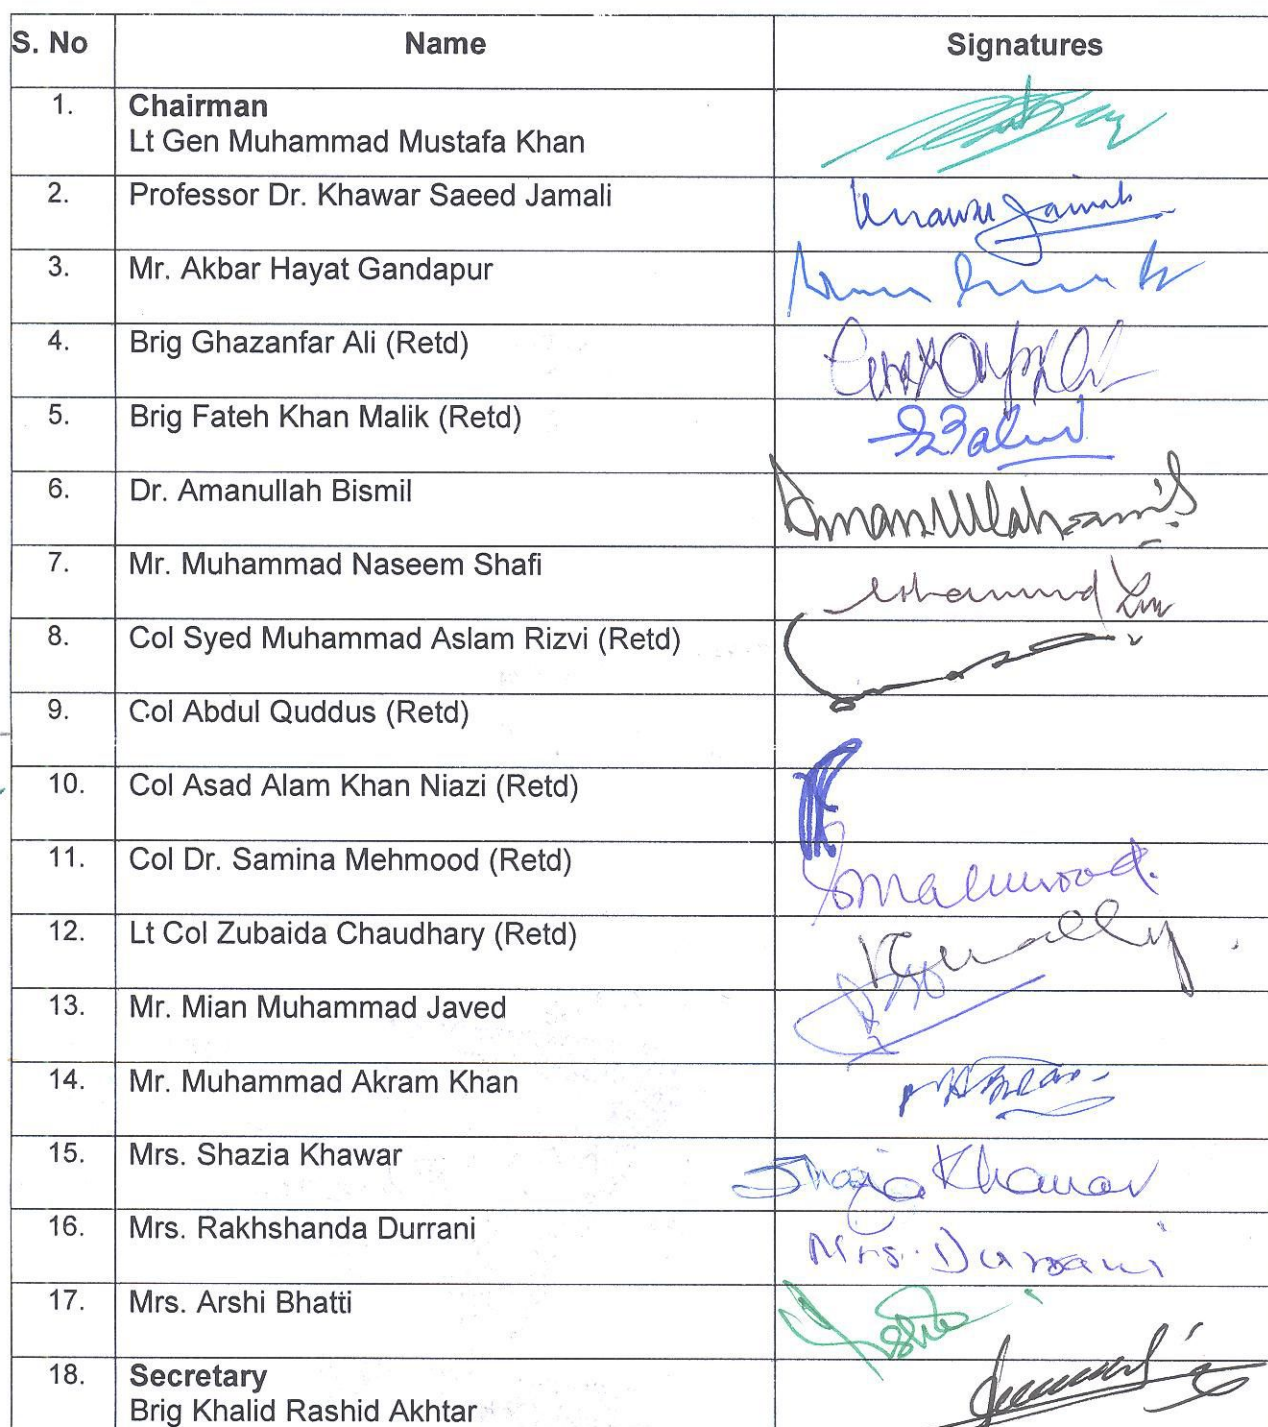 S. No Name Signatures
1. Chairman
Lt Gen Muhammad Mustafa Khan
2. Professor Dr. Khawar Saeed Jamali Khawar Jamali
3. Mr. Akbar Hayat Gandapur
4. Brig Ghazanfar Ali (Retd)
5. Brig Fateh Khan Malik (Retd)
6. Dr. Amanullah Bismil
7. Mr. Muhammad Naseem Shafi
8. Col Syed Muhammad Aslam Rizvi (Retd)
9. Col Abdul Quddus (Retd)
10. Col Asad Alam Khan Niazi (Retd)
11. Col Dr. Samina Mehmood (Retd) Smahmood.
12. Lt Col Zubaida Chaudhary (Retd)
13. Mr. Mian Muhammad Javed
14. Mr. Muhammad Akram Khan
15. Mrs. Shazia Khawar Shazia Khawar
16. Mrs. Rakhshanda Durrani Mrs. Durrani
17. Mrs. Arshi Bhatti
18. Secretary
Brig Khalid Rashid Akhtar